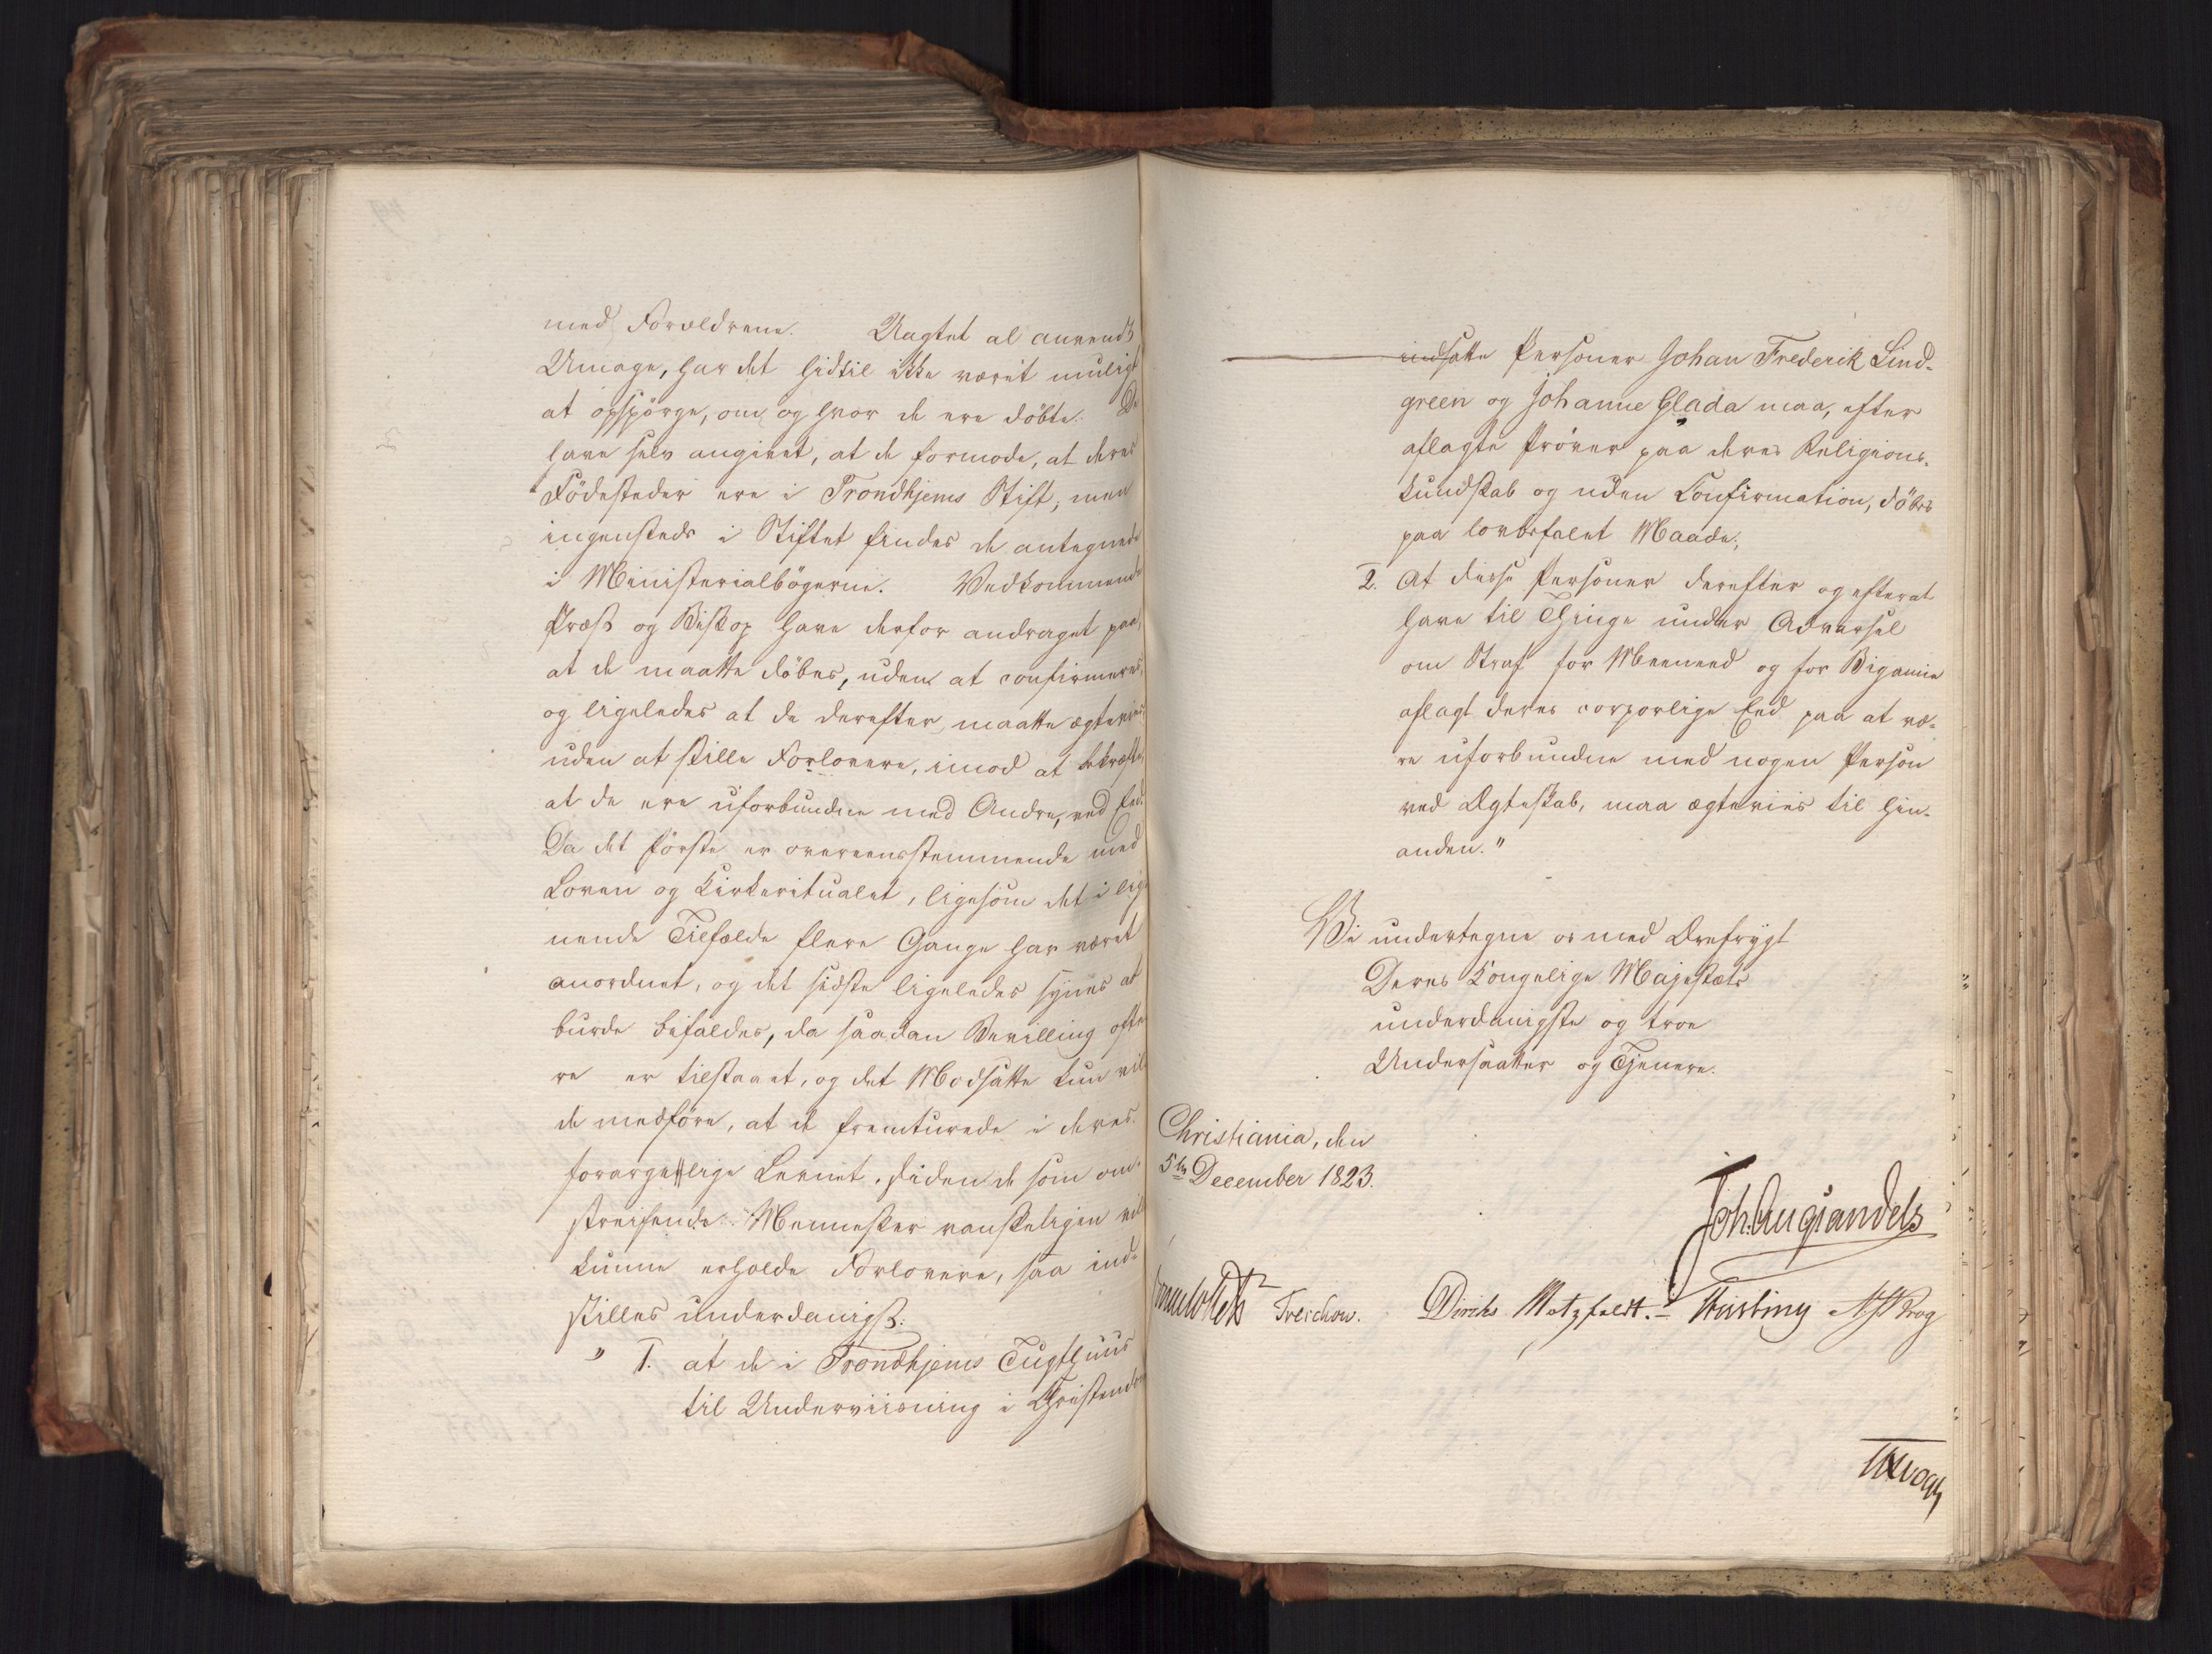 med Forældrene. Uagtet al anvendt
Umage, har det hidtil ikke været muligt
at opspörge, om og hvor de ere döbte. De
have selv angivet, at de formode, at deres
Födesteder ere i Trondhjems Stift, men
ingensteds i Stiftet findes de antegnede
i Ministerialbögerne. Vedkommende
Præst og Biskop have derfor andraget paa,
at de maatte döbes, uden at confirmeres,
og ligeledes at de derefter maatte ægtevies
uden at stille Forlovere, imod at bekræfte,
at de ere uforbundne med Andre, ved Eed.
Da det förste er overeensstemmende med
Loven og Kirkeritualet, ligesom det i lig-
nende Tilfælde flere Gange har været
anordnet, og det sidste ligeledes synes at
burde bifaldes, da saadan Bevilling ofte-
re er tilstaaet, og det Modsatte kun vil-
de medföre, at de fremturede i deres
forargelige Levnet, siden de som om-
streifende Mennesker vanskeligen vil
kunne erholde Forlovere, saa ind-
stilles underdanigst:
" 1. at de i Trondhjems Tugthuus
til Underviisning i Christendom
indsatte Personer Johan Frederik Lind-
green og Johanne Glada maa, efter
aflagte Pröver paa deres Religions-
kundskab og uden Confirmation, döbes
paa lovbefalet Maade;
2. At disse Personer derefter og efterat
have til Thinge under Advarsel
om Straf for Meeneed og for Bigamie
aflagt deres corporlige Eed paa at væ-
re uforbundne med nogen Person
ved Ægteskab, maa ægtevies til hin-
anden."
Vi undertegne os med Ærefrygt
Deres Kongelige Majestæts
underdanigste og troe
Undersaatter og Tjenere.
Christiania, den
5te December 1823.
Joh. Aug Sandels
Treschow. Diriks Motzfeldt. Fasting